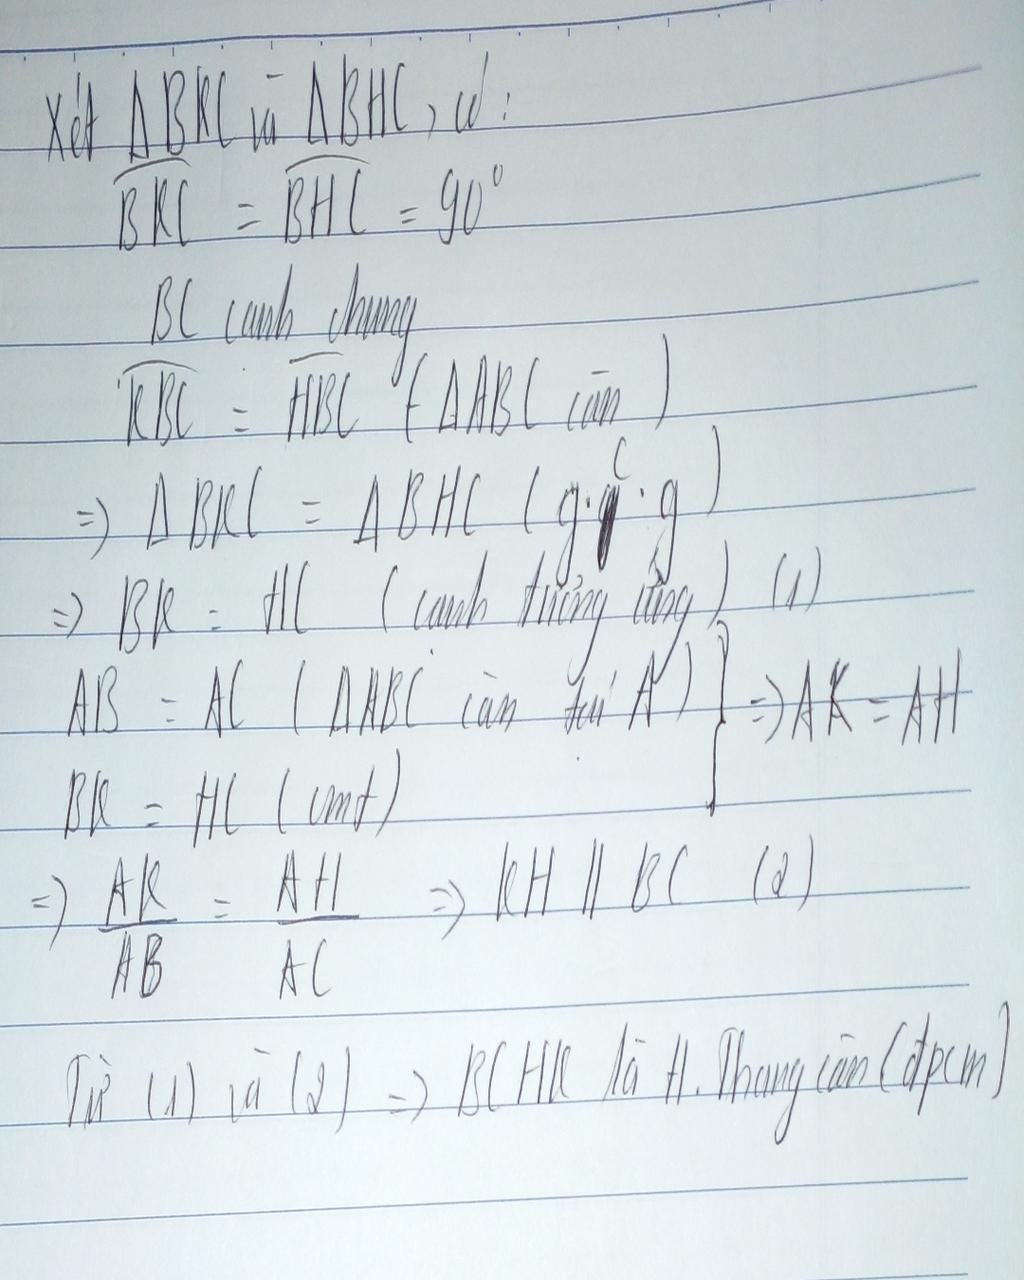 Xét ΔBKC và ΔBHC, có:
BKC = BHC = 90°
BC cạnh chung
KBC = HBC (ΔABC cân)
=> ΔBKC = ΔBHC (g.c.g)
=> BK = HC (cạnh tương ứng) (1)
AB = AC (ΔABC cân tại A) } => AK = AH
BK = HC (cmt)
=> AK/AB = AH/AC => KH // BC (2)
Từ (1) và (2) => BCHK là H.Thang cân (đpcm)